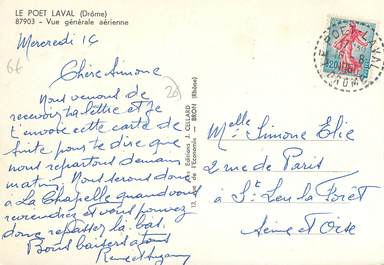 LE POET LAVAL (Drôme)
87903 - Vue générale aérienne
Mercredi 14
66
20
Chère Simone
Nous venons de
recevoir ta lettre et je
t'envoie cette carte de
suite pour te dire que
nous repartons demain
matin. Nous serons donc
à La Chapelle quand vous
reviendrez et vous pouvez
donc repasser là-bas.
Bons baisers à tous
Editions J. CELLARD
17, rue de l'Economie - BRON (Rhône)
Melle Simone Elie
2 rue de Paris
à St Leu la Forêt
Seine et Oise